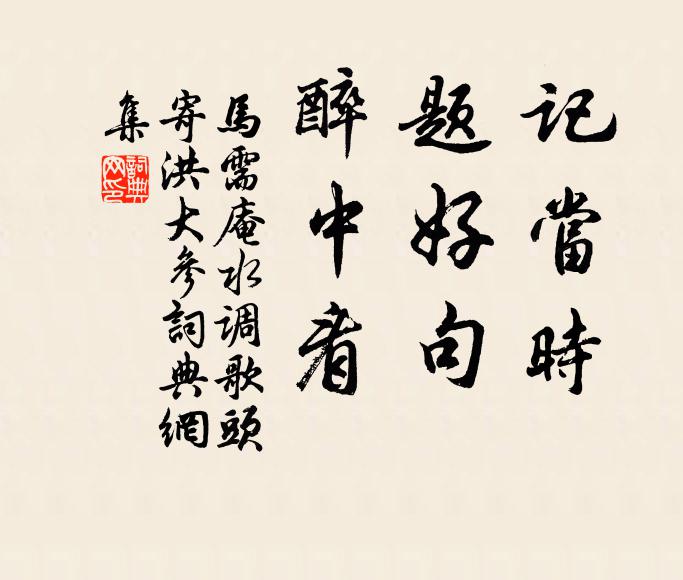 记當時
题好句
醉中看
馬需庵水调歌頭
寄洪大參詞典網
集
詞典
网印